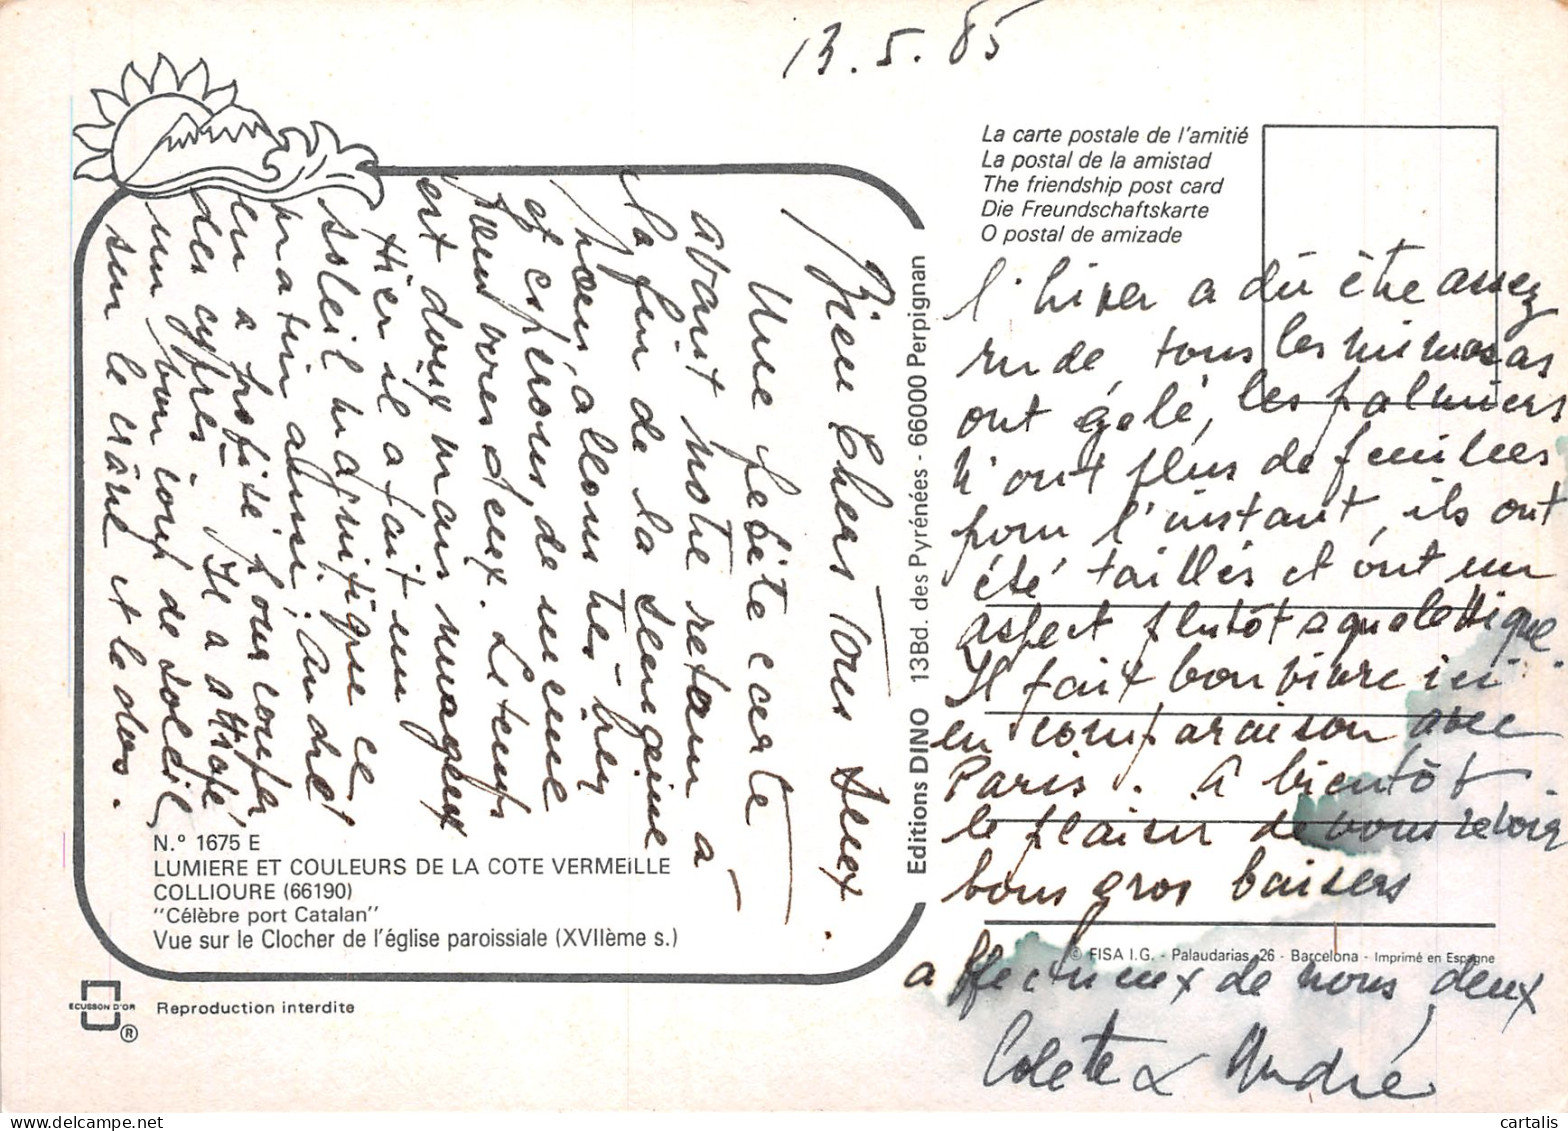 13.5.85
Bien Chers Tous deux.
Une petite carte
avant notre retour à
la fin de la semaine
nous allons très bien
et espérons de même
pour vous deux. Le temps
est doux mais nuageux
Hier il a fait un
soleil magnifique ce
matin aussi, André
en a profité pour couper
des cyprès - Il a attrapé,
un bon coup de soleil,
sur le crâne et le dos.
N.º 1675 E
LUMIERE ET COULEURS DE LA COTE VERMEILLE
COLLIOURE (66190)
"Célèbre port Catalan"
Vue sur le Clocher de l'église paroissiale (XVIIème s.)
ECUSSON D'OR
®
Reproduction interdite
Editions DINO 13Bd. des Pyrénées - 66000 Perpignan
La carte postale de l'amitié
La postal de la amistad
The friendship post card
Die Freundschaftskarte
O postal de amizade
l'hiver a dû être assez
rude, tous les mimosas
ont gelé, les palmiers
n'ont plus de feuilles
pour l'instant, ils ont
été taillés et ont un
aspect plutôt squelettique.
Il fait bon vivre ici
en comparaison avec
Paris. à bientôt
le plaisir de vous revoir
bons gros baisers
affectueux de nous deux
Colette & André
© FISA I.G. - Palaudarias, 26 - Barcelona - Imprimé en Espagne
cartalis